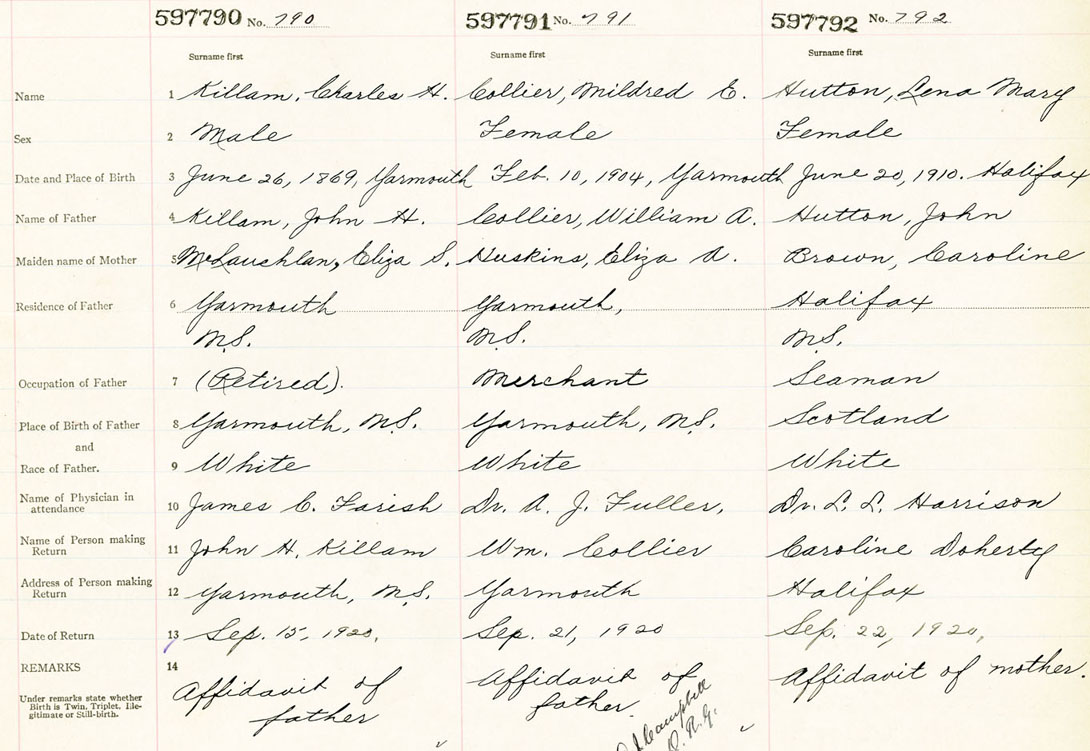 597790 No. 790 597791 No. 791 597792 No. 792
Surname first Surname first Surname first
Name 1 Killam, Charles H. Collier, Mildred E. Hutton, Lena Mary
Sex 2 Male Female Female
Date and Place of Birth 3 June 26, 1869, Yarmouth Feb. 10, 1904, Yarmouth June 20, 1910. Halifax
Name of Father 4 Killam, John H. Collier, William A. Hutton, John
Maiden name of Mother 5 McLauchlan, Eliza S. Huskins, Eliza A. Brown, Caroline
Residence of Father 6 Yarmouth Yarmouth, Halifax
N.S. N.S. N.S.
Occupation of Father 7 (Retired). Merchant Seaman
Place of Birth of Father 8 Yarmouth, N.S. Yarmouth, N.S. Scotland
and
Race of Father. 9 White White White
Name of Physician in
attendance 10 James C. Farish Dr. A. J. Fuller, Dr. L. L. Harrison
Name of Person making
Return 11 John H. Killam Wm. Collier Caroline Doherty
Address of Person making
Return 12 Yarmouth, N.S. Yarmouth Halifax
Date of Return 13 Sep. 15, 1920, Sep. 21, 1920 Sep. 22, 1920,
REMARKS 14 Affidavit of Affidavit of Affidavit of mother.
father father.
Under remarks state whether
Birth is Twin, Triplet, Ille-
gitimate or Still-birth.
Campbell
D.R.G.